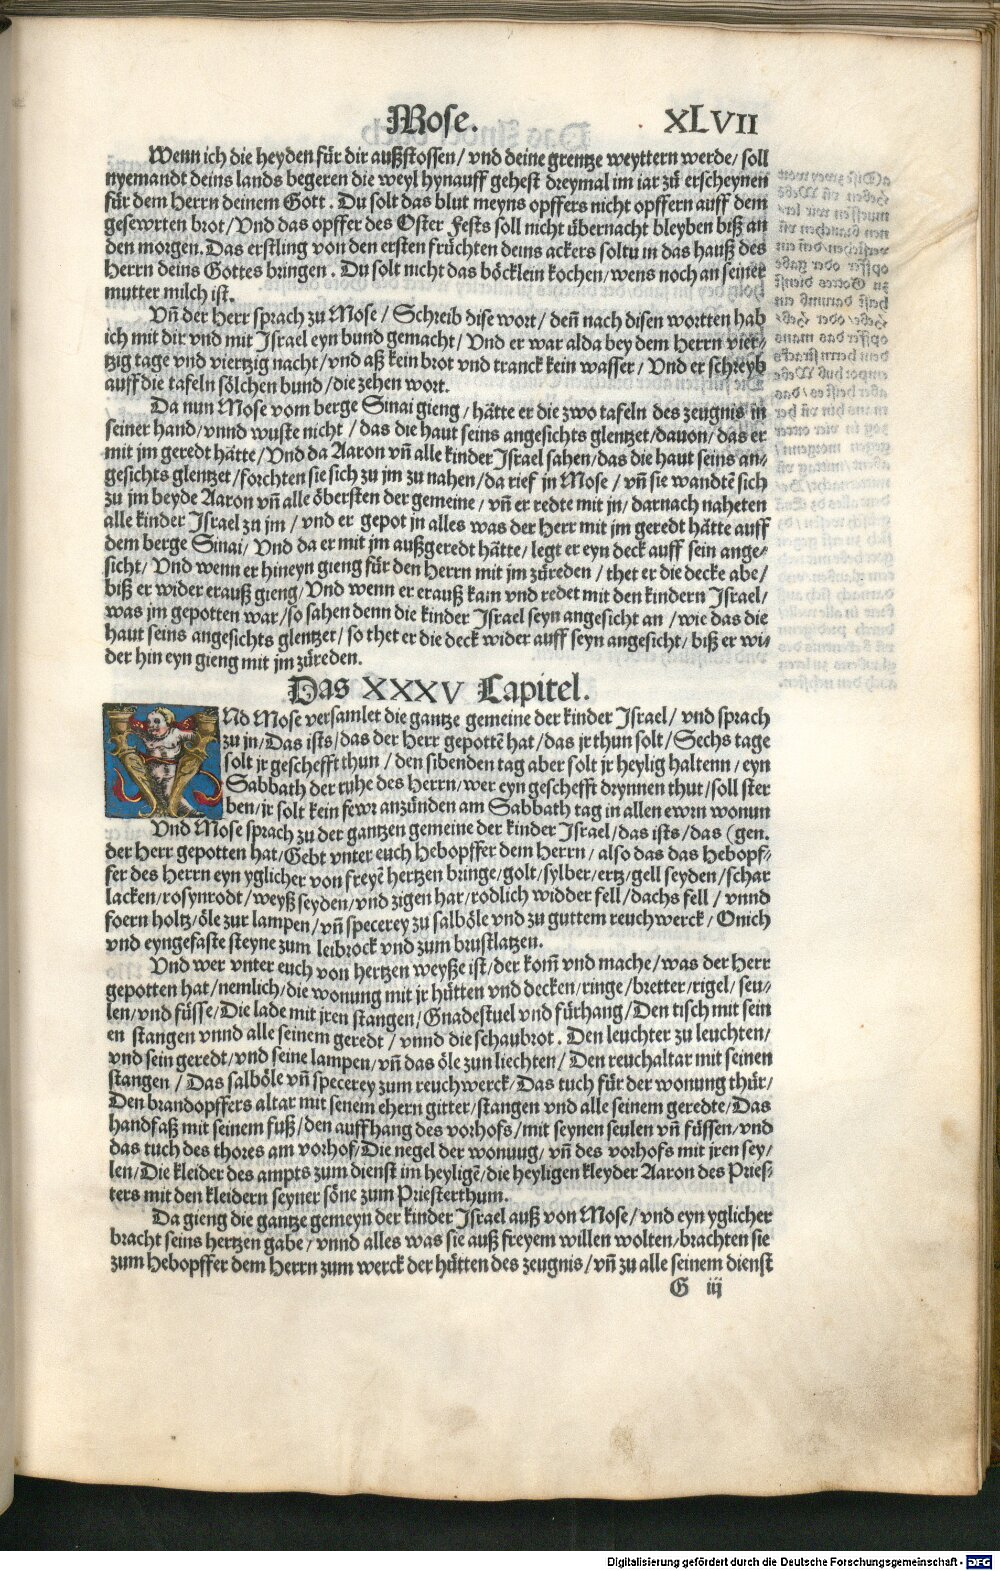 Mose. XLVII
Wenn ich die heyden für dir außstossen/ vnd deine grentze weyttern werde/ soll
nyemandt deins lands begeren die weyl hynauff gehest dreymal im iar zů erscheynen
für dem Herrn deinem Gott. Du solt das blut meyns opffers nicht opffern auff dem
gesewrten brot/ Vnd das opffer des Oster Fests soll nicht übernacht bleyben biß an
den morgen. Das erstling von den ersten früchten deins ackers soltu in das hauß des
Herrn deins Gottes bringen. Du solt nicht das böcklein kochen/ wens noch an seiner
mutter milch ist.
Vñ der Herr sprach zu Mose/ Schreib dise wort/ deñ nach disen wortten hab
ich mit dir vnd mit Israel eyn bund gemacht/ Vnd er war alda bey dem Herrn vier-
tzig tage vnd viertzig nacht/ vnd aß kein brot vnd tranck kein wasser/ Vnd er schreyb
auff die tafeln sölchen bund/ die zehen wort.
Da nun Mose vom berge Sinai gieng/ hätte er die zwo tafeln des zeugnis in
seiner hand/ vnnd wuste nicht/ das die haut seins angesichts glentzet/ dauon/ das er
mit jm geredt hätte/ Vnd da Aaron vñ alle kinder Israel sahen/ das die haut seins an-
gesichts glentzet/ forchten sie sich zu jm zu nahen/ da rief jn Mose/ vñ sie wandtẽ sich
zu jm beyde Aaron vñ alle öbersten der gemeine/ vñ er redte mit jn/ darnach naheten
alle kinder Israel zn jm/ vnd er gepot jn alles was der Herr mit jm geredt hätte auff
dem berge Sinai/ Vnd da er mit jm außgeredt hätte/ legt er eyn deck auff sein ange-
sicht/ Vnd wenn er hineyn gieng für den Herrn mit jm zůreden/ thet er die decke abe/
biß er wider erauß gieng/ Vnd wenn er erauß kam vnd redet mit den kindern Israel/
was jm gepotten war/ so sahen denn die kinder Israel seyn angesicht an/ wie das die
haut seins angesichts glentzet/ so thet er die deck wider auff seyn angesicht/ biß er wi-
der hin eyn gieng mit jm zůreden.
Das XXXV Capitel.
VNd Mose versamlet die gantze gemeine der kinder Israel/ vnd sprach
zu jn/ Das ists/ das der Herr gepottẽ hat/ das jr thun solt/ Sechs tage
solt jr geschefft thun/ den sibenden tag aber solt jr heylig haltenn/ eyn
Sabbath der ruhe des Herrn/ wer eyn geschefft drynnen thut/ soll ster
ben/ jr solt kein fewr anzünden am Sabbath tag in allen ewrn wonun
Vnd Mose sprach zu der gantzen gemeine der kinder Israel/ das ists/ das (gen.
der Herr gepotten hat/ Gebt vnter euch Hebopffer dem Herrn/ also das das Hebopf-
fer des Herrn eyn yglicher von freyẽ hertzen bringe/ golt/ sylber/ ertz/ gell seyden/ schar
lacken/ rosynrodt/ weyß seyden/ vnd zigen har/ rödlich widder fell/ dachs fell/ vnnd
foern holtz/ öle zur lampen/ vñ specerey zu salböle vnd zu guttem reuchwerck/ Onich
vnd eyngefaste steyne zum leibrock vnd zum brustlatzen.
Vnd wer vnter euch von hertzen weyße ist/ der kom̃ vnd mache/ was der Herr
gepotten hat/ nemlich/ die wonung mit jr hütten vnd decken/ ringe/ bretter/ rigel/ seu-
len/ vnd füsse/ Die lade mit jren stangen/ Gnadestuel vnd fürhang/ Den tisch mit sein
en stangen vnnd alle seinem geredt/ vnnd die schaubrot. Den leuchter zu leuchten/
vnd sein geredt/ vnd seine lampen/ vñ das öle zun liechten/ Den reuchaltar mit seinen
stangen/ Das salböle vñ specerey zum reuchwerck/ Das tuch für der wonung thür/
Den brandopffers altar mit senem ehern gitter/ stangen vnd alle seinem geredte/ Das
handfaß mit seinem fuß/ den auffhang des vorhofs/ mit seynen seulen vñ füssen/ vnd
das tuch des thores am vorhof/ Die negel der wonuug/ vñ des vorhofs mit jren sey-
len/ Die kleider des ampts zum dienst im heyligẽ/ die heyligen kleyder Aaron des Pries-
ters mit den kleidern seyner söne zum Priesterthum.
Da gieng die gantze gemeyn der kinder Israel auß von Mose/ vnd eyn yglicher
bracht seins hertzen gabe/ vnnd alles was sie auß freyem willen wolten/ brachten sie
zum Hebopffer dem Herrn zum werck der hütten des zeugnis/ vñ zu alle seinem dienst
G iij
Digitalisierung gefördert durch die Deutsche Forschungsgemeinschaft - DFG